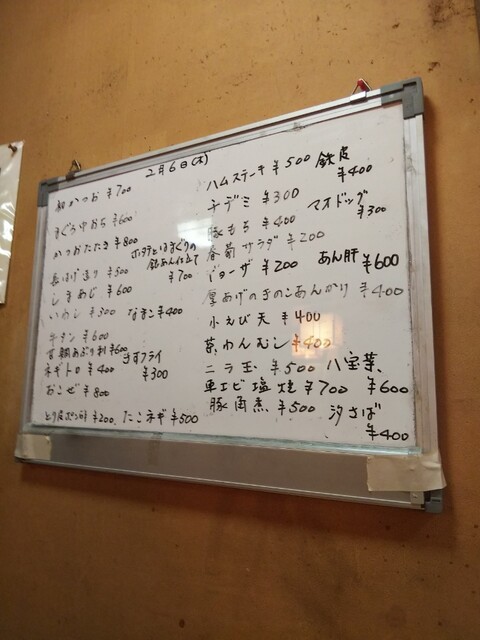 2月6日(木)
かつお ¥700
まぐろ中おち ¥600
かつおたたき ¥800
ホタテとはまぐりの
銀あん仕立て
¥700
¥500
しまあじ ¥600
いわし ¥300 なまこ ¥400
牛タン ¥600
鯛あぶり刺 ¥600
ネギトロ ¥400
きすフライ
¥300
おこぜ ¥800
とり皮ポン酢 ¥200 たこネギ ¥500
ハムステーキ ¥500 鉄皮
¥400
チヂミ ¥300 マオドッグ
¥300
豚もち ¥400
春菊サラダ ¥200
¥200 あん肝 ¥600
厚あげのきのこあんかけ ¥400
小えび天 ¥400
茶わんむし ¥400
ニラ玉 ¥500 八宝菜
¥600
車エビ塩焼 ¥700
豚角煮 ¥500 汐さば
¥400